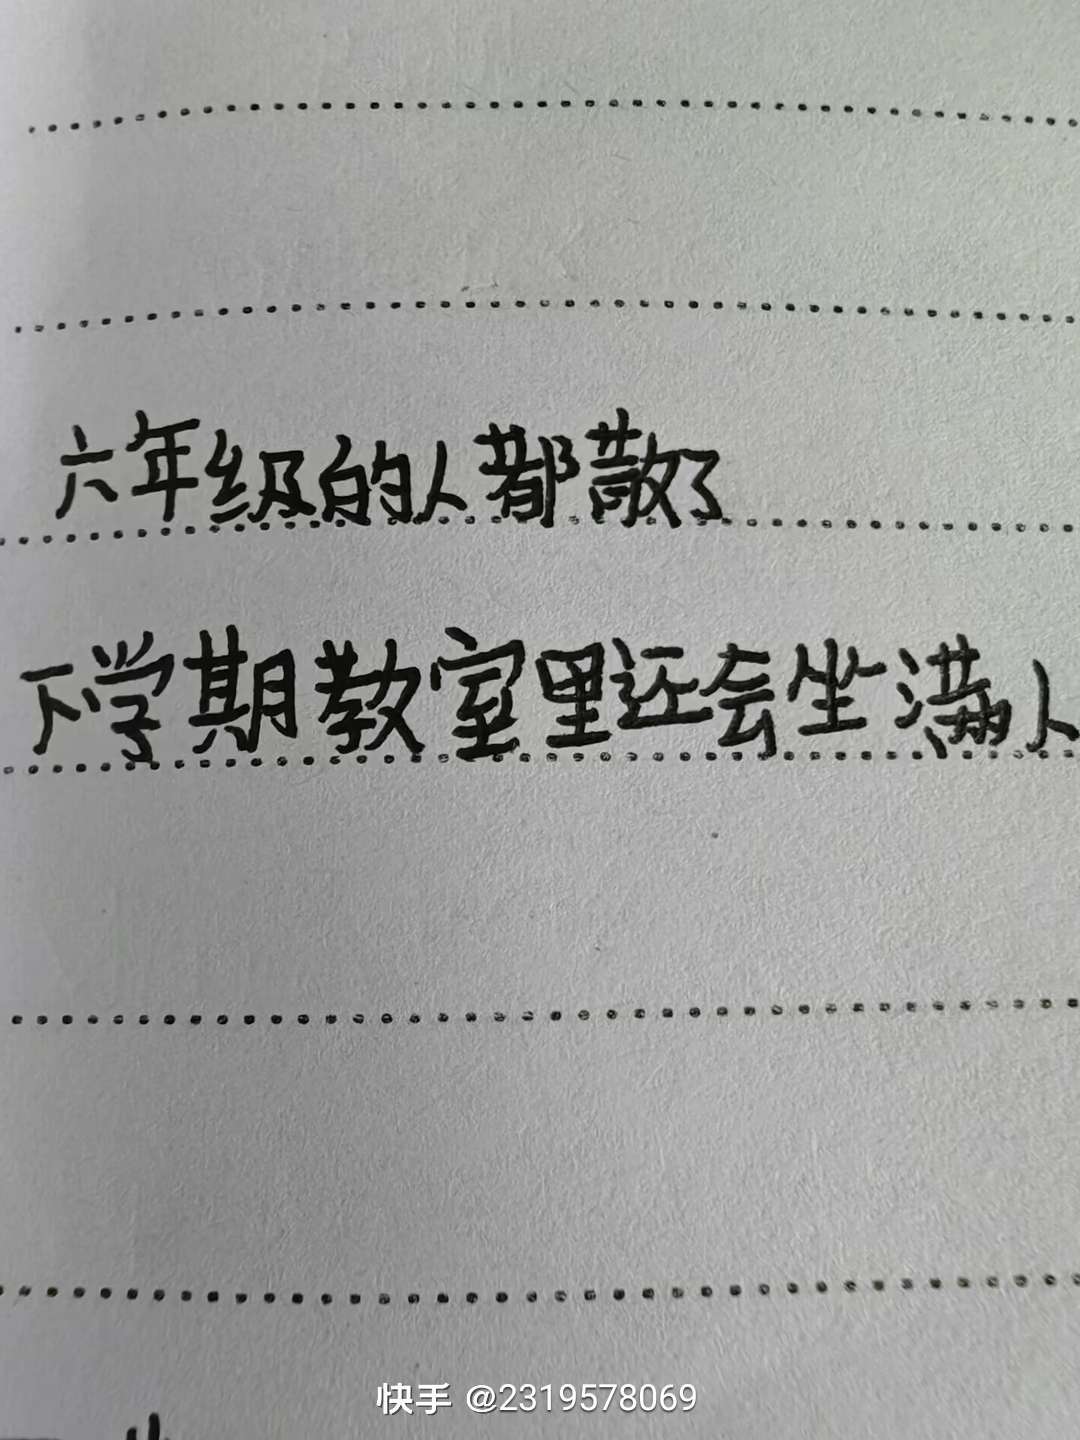 六年级的人都散了
下学期教室里还会坐满人
快手 @2319578069